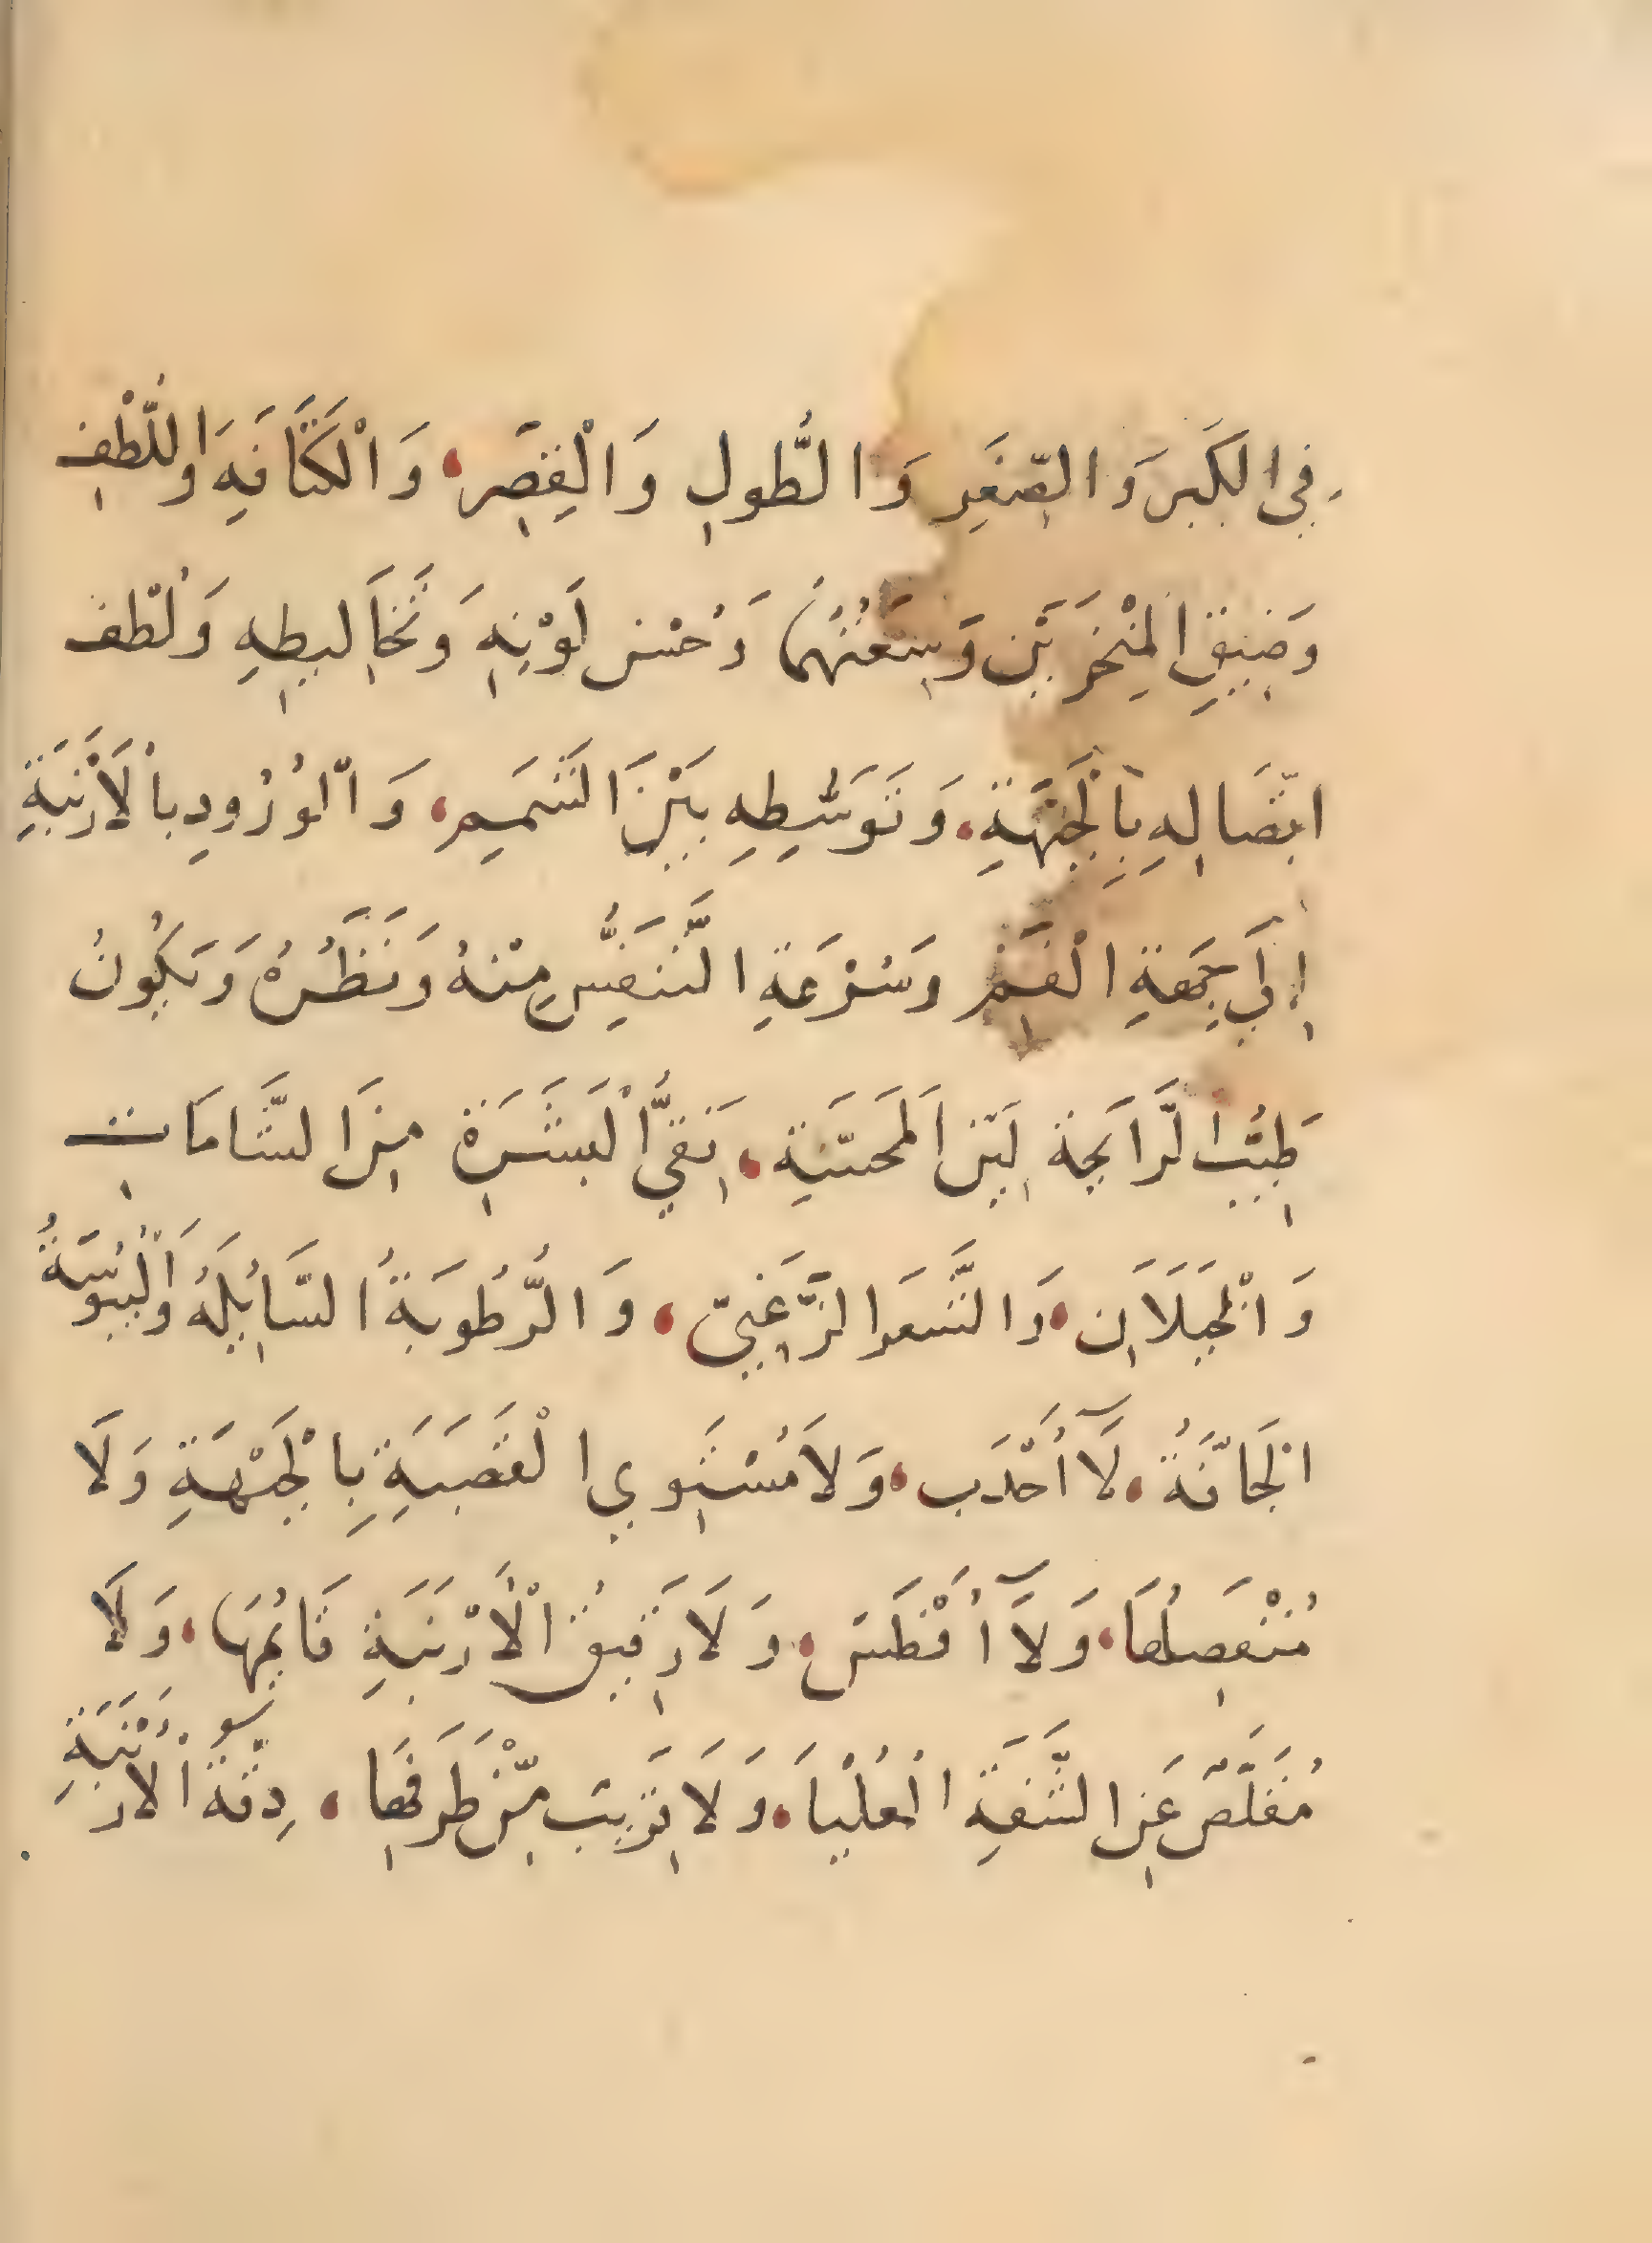 فِي الكِبَرِ وَالصِّغَرِ وَالطُّولِ وَالْقِصَرِ، وَالْكَثَافَةِ وَاللُّطْفِ
وَضِيقِ المِنْخَرَيْنِ وَسِعَتُهُمَا وَحُسْنِ لَوْنِهِ وَتَخَالِيطِهِ وَلُطْفِ
اتِّصَالِهِ بِالْجَبْهَةِ، وَتَوَسُّطِهِ بَيْنَ الشَّمَمِ، وَالْوُرُودِ بِالْأَرْنَبَةِ
إِلَى جِهَةِ الْفَمِ وَسُرْعَةِ التَّنَفُّسِ مِنْهُ وَنَظَرُهُ وَيَكُونُ
طَيِّبَ الرَّائِحَةِ لَيِّنَ المَحَسَّةِ، نَقِيَّ الْبَشَرَةِ مِنَ الشَّامَاتِ
وَالْخِيلَانِ، وَالشَّعَرِ الزَّغَبِيِّ، وَالرُّطُوبَةُ السَّائِلَةُ وَالْيُبُوسَةُ
الجَافَّةُ، لَا أَحْدَب، وَلَا مُسْتَوِي الْقَصَبَةِ بِالْجَبْهَةِ وَلَا
مُنْفَصِلُهَا، وَلَا أَفْطَسَ، وَلَا رَقِيقُ الْأَرْنَبَةِ قَائِمُهَا، وَلَا
مُقَلَّصٌ عَنِ الشَّفَةِ الْعُلْيَا، وَلَا قَرِيبَ مِنْ طَرَفِهَا، دِقَّةُ الْأَرْنَبَةِ